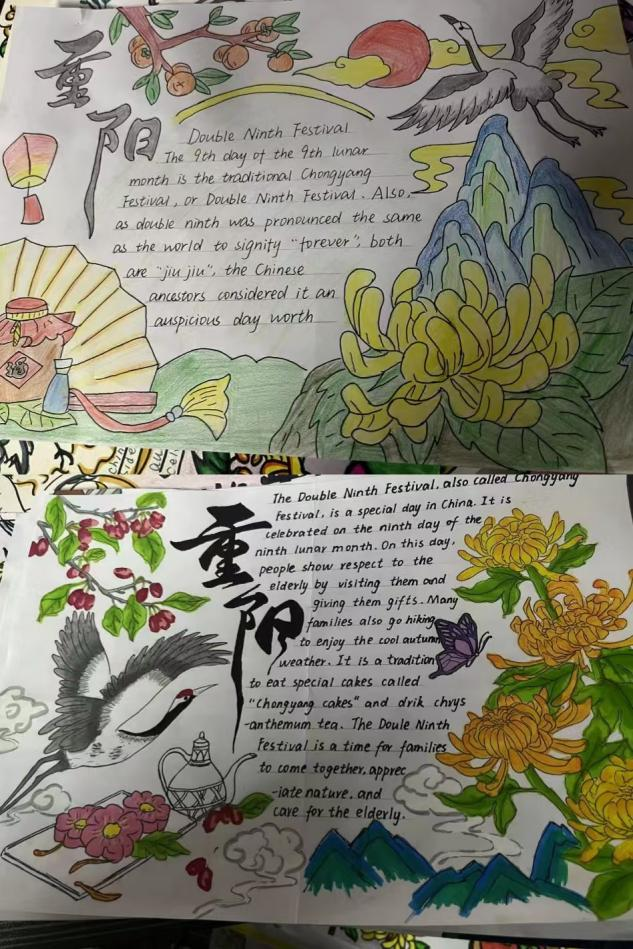 重阳
Double Ninth Festival
The 9th day of the 9th lunar
month is the traditional Chongyang
Festival, or Double Ninth Festival. Also,
as double ninth was pronounced the same
as the world to signity "forever", both
are "jiu jiu", the Chinese
ancestors considered it an
auspicious day worth
福
The Double Ninth Festival, also called Chongyang
Festival, is a special day in China. It is
celebrated on the ninth day of the
ninth lunar month. On this day,
people show respect to the
elderly by visiting them and
giving them gifts. Many
families also go hiking
to enjoy the cool autumn
weather. It is a tradition
to eat special cakes called
"Chongyang cakes" and drik chrys
-anthemum tea. The Doule Ninth
Festival is a time for families
to come together, apprec
-iate nature, and
care for the elderly.
重阳